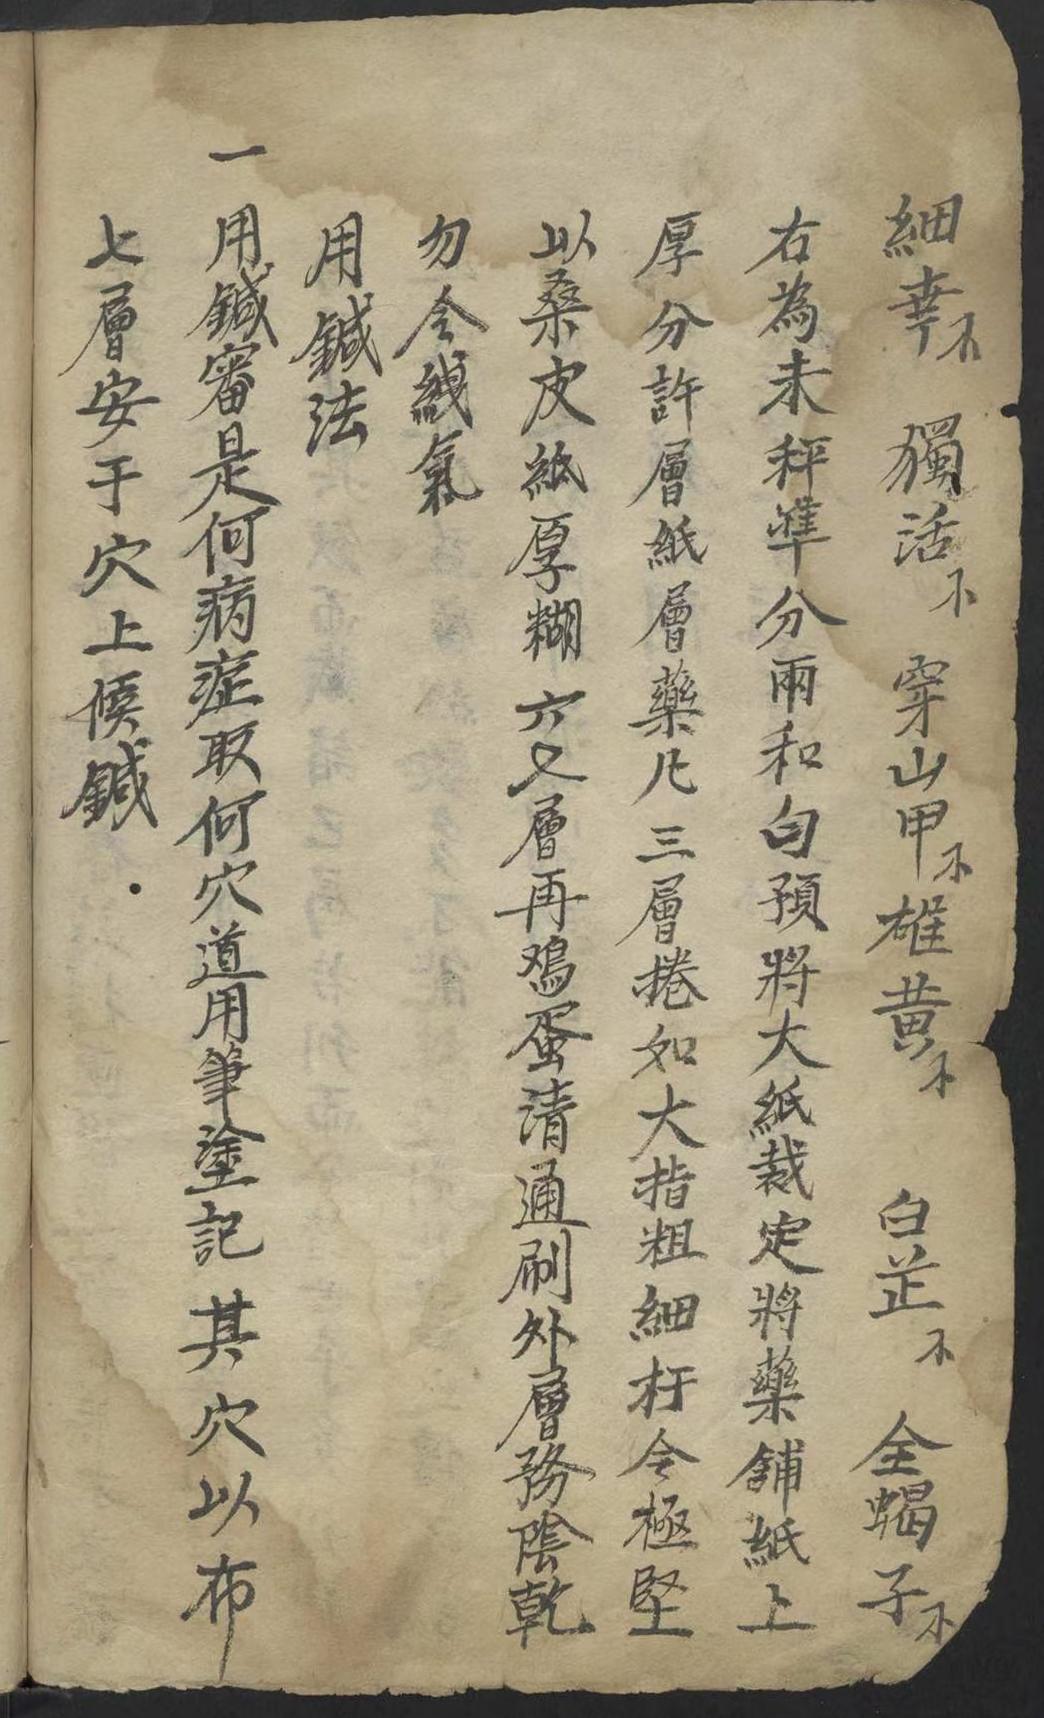 細辛不 獨活不 穿山甲不 雄黃不 白芷不 全蝎子不
右為末秤準分兩和勻預將大紙裁定將藥舖紙上
厚分許層紙層藥凡三層捲如大指粗細杆令極堅
以桑皮紙厚糊六又層再鷄蛋清通刷外層務陰乾
勿令綫氣
用鍼法
一用鍼審是何病症取何穴道用筆塗記其穴以布
七層安于穴上候鍼．